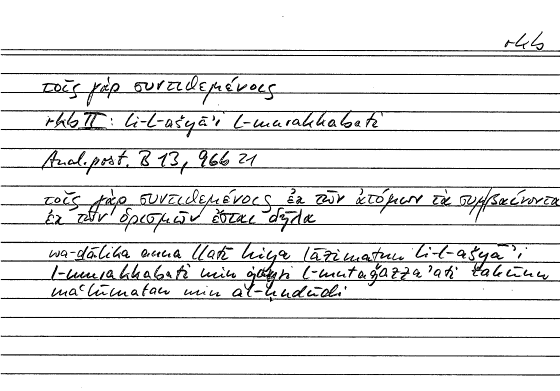 rkb
τοῖς γὰρ συντιθεμένοις
rkb II: li-l-ašyāʾi l-murakkabati
Anal.post. B 13, 96b 21
τοῖς γὰρ συντιθεμένοις ἐκ τῶν ἀτόμων τὰ συμβαίνοντα
ἐκ τῶν ὁρισμῶν ἔσται δῆλα
wa-ḏālika anna llatī hiya lāzimatun li-l-ašyāʾi
l-murakkabati min ġayri l-mutaǧazzaʾati takūnu
maʿlūmatan min al-ḥudūdi